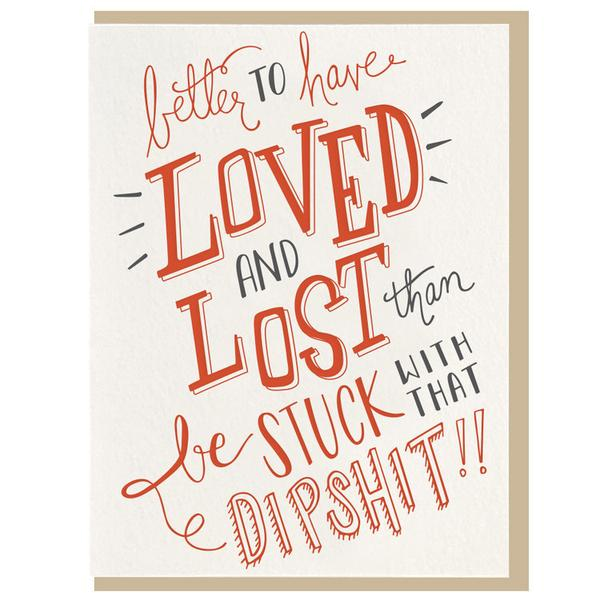 better TO have
LOVED
AND
LOST than
be STUCK WITH THAT
DIPSHIT!!